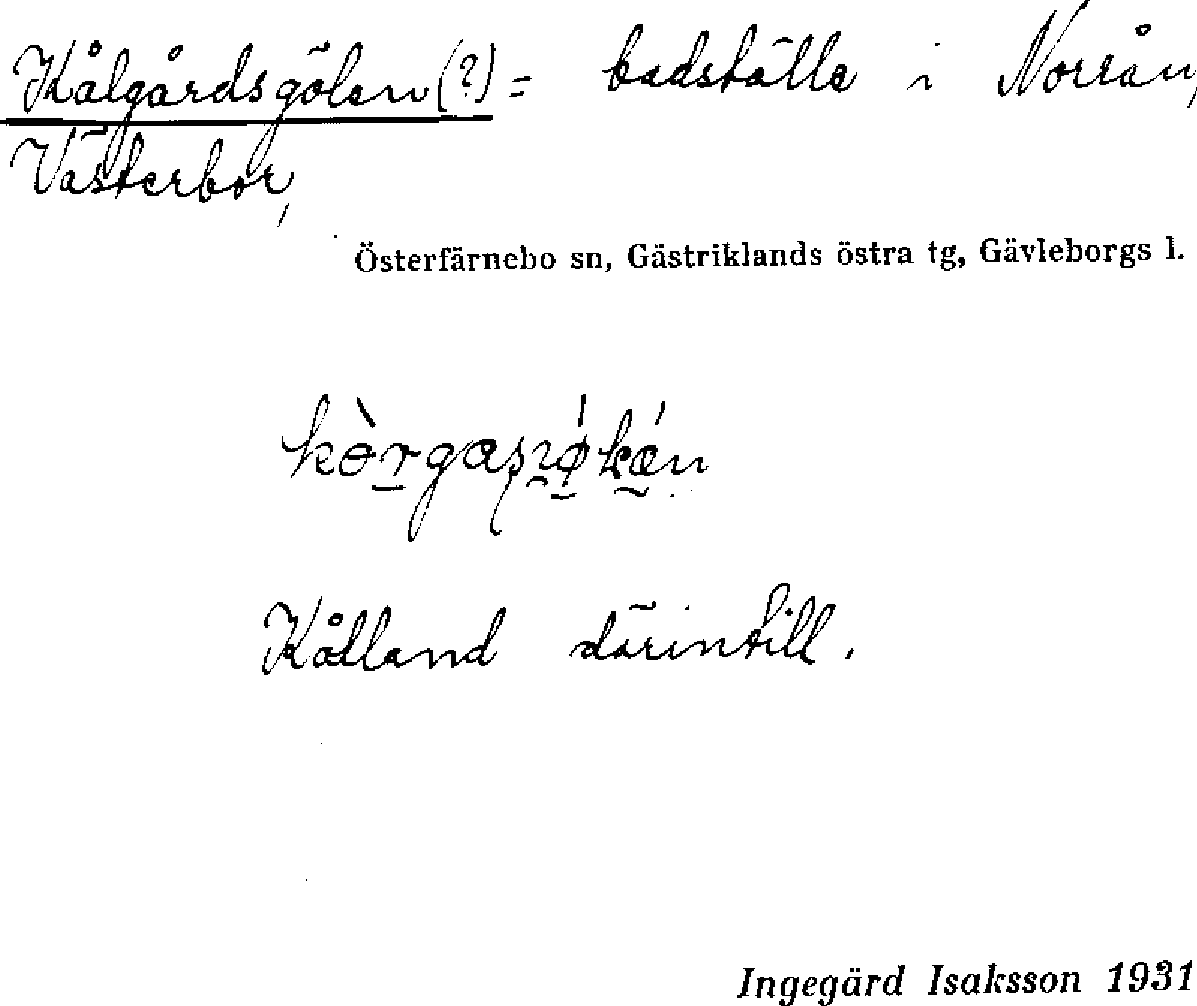 Kålgårdsgölen(?) = badställe i Norrån,
Västerbor,
Österfärnebo sn, Gästriklands östra tg, Gävleborgs l.
Kålland därintill.
Ingegärd Isaksson 1931